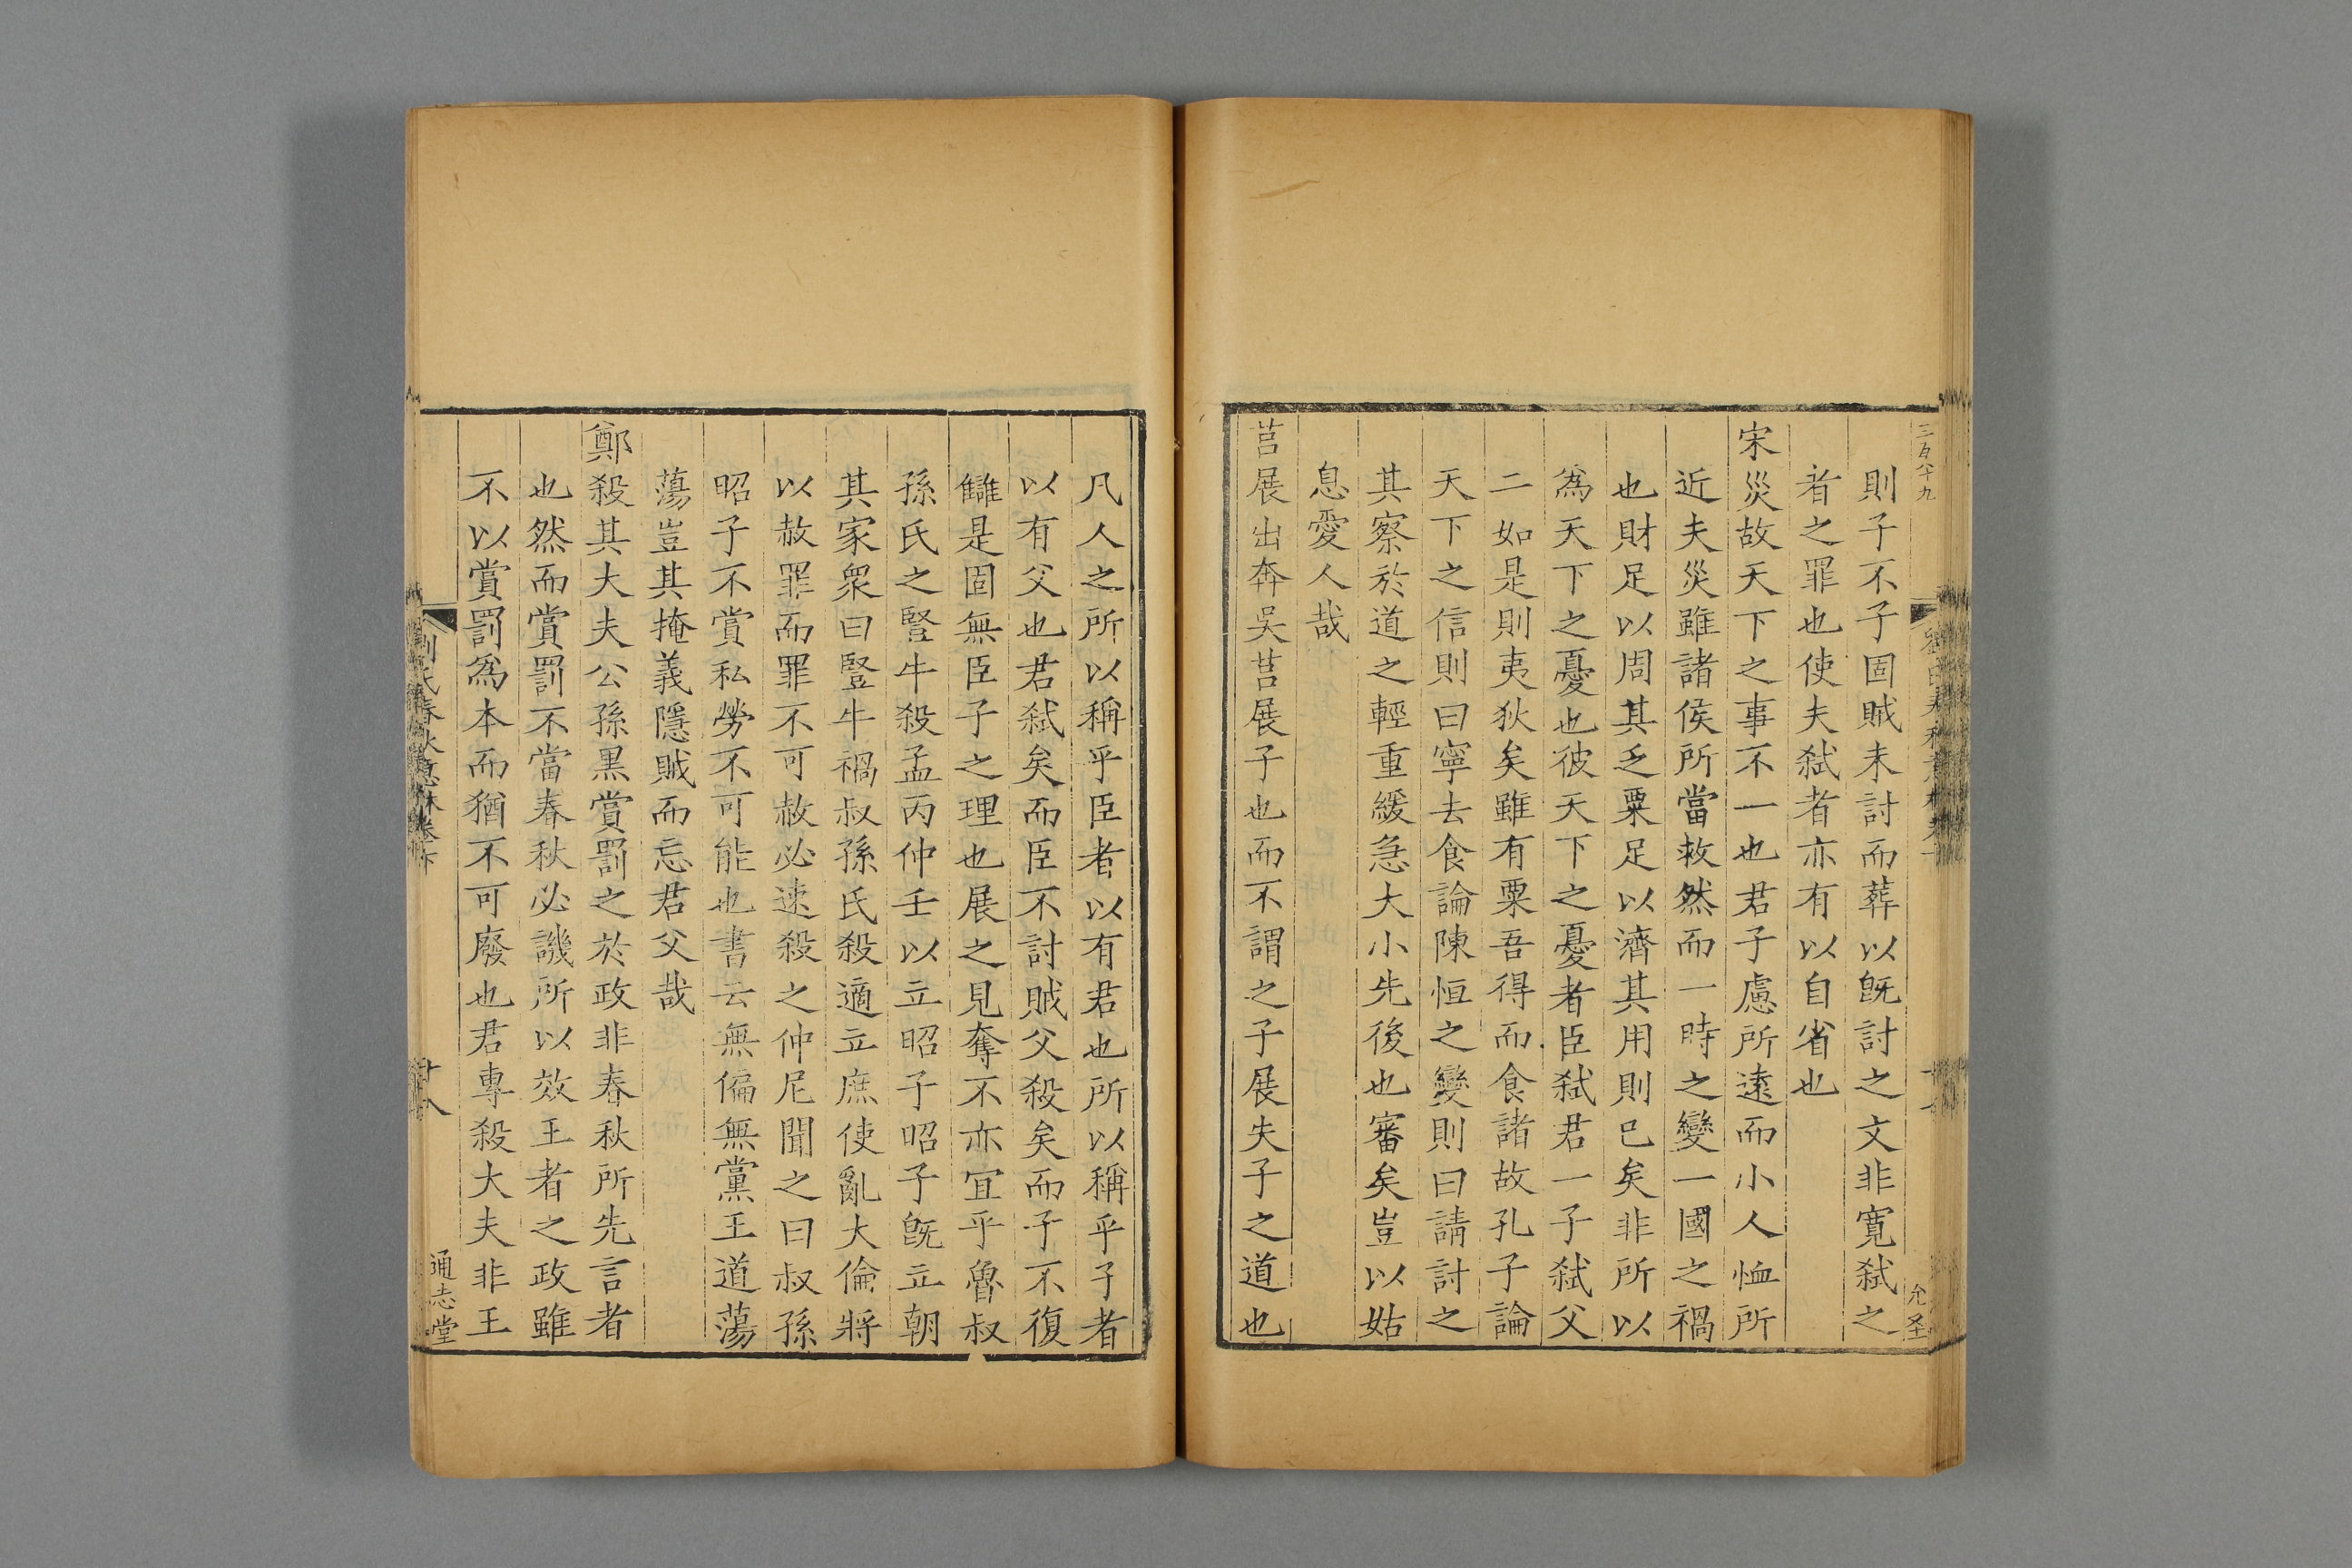 三百八十九
允圣
則子不子固賊未討而葬以旣討之文非寛弑之
者之罪也使夫弑者亦有以自省也
宋災故天下之事不一也君子慮所遠而小人恤所
近夫災雖諸侯所當救然而一時之變一國之禍
也財足以周其乏粟足以濟其用則已矣非所以
爲天下之憂也彼天下之憂者臣弑君一子弑父
二如是則夷狄矣雖有粟吾得而食諸故孔子論
天下之信則曰寧去食論陳恒之變則曰請討之
其察於道之輕重緩急大小先後也審矣豈以姑
息愛人哉
莒展出奔吳莒展子也而不謂之子展失子之道也
凡人之所以稱乎臣者以有君也所以稱乎子者
以有父也君弑矣而臣不討賊父殺矣而子不復
讎是固無臣子之理也展之見奪不亦宜乎魯叔
孫氏之豎牛殺孟丙仲壬以立昭子昭子旣立朝
其家衆曰豎牛禍叔孫氏殺適立庶使亂大倫將
以赦罪而罪不可赦必速殺之仲尼聞之曰叔孫
昭子不賞私勞不可能也書云無偏無黨王道蕩
蕩豈其掩義隱賊而忘君父哉
鄭殺其大夫公孫黒賞罰之於政非春秋所先言者
也然而賞罰不當春秋必譏所以效王者之政雖
不以賞罰爲本而猶不可廢也君專殺大夫非王
劉氏春秋意林卷下
十八
通志堂